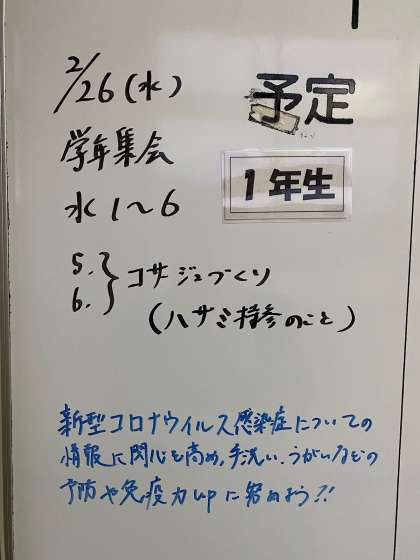 2/26(水)
予定
1年生
学年集会
水1〜6
5.
6.
コサージュづくり
(ハサミ持参のこと)
新型コロナウイルス感染症についての
情報に関心を高め、手洗い、うがいなどの
予防や免疫力upに努めよう!!